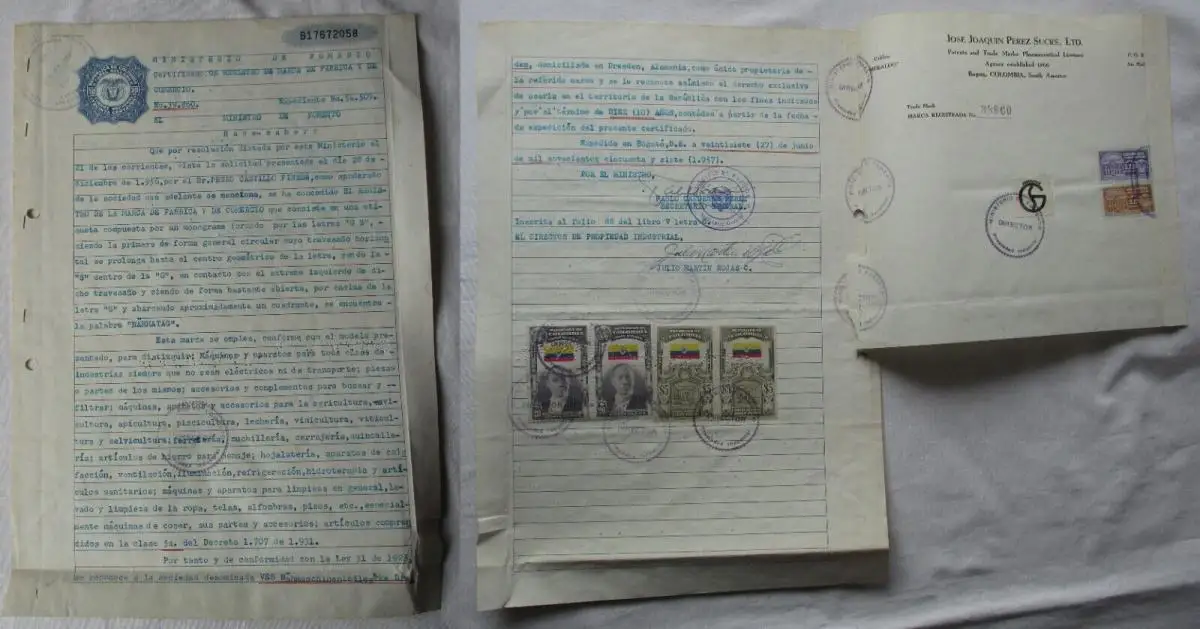 B17672058
MINISTERIO DE FOMENTO
Certificado DE REGISTRO DE MARCA DE FABRICA Y DE
COMERCIO.
No.39.860. Expediente No.54.509.
EL MINISTRO DE FOMENTO
Hace saber:
Que por resolución dictada por este Ministerio el
21 de los corrientes, vista la solicitud presentada el día 28 de
diciembre de 1.956, por el Dr. PEDRO CASTILLO PINEDA, como apoderado
de la sociedad que adelante se menciona, se ha concedido El REGIS-
TRO DE LA MARCA DE FABRICA Y DE COMERCIO que consiste en una eti-
queta compuesta por un monograma formado por las letras "G S",
siendo la primera de forma general circular cuyo travesaño horizon
tal se prolonga hasta el centro geométrico de la letra, yendo la
"S" dentro de la "G", en contacto con el extremo izquierdo de di-
cho travesaño y siendo de forma bastante abierta, por encima de la
letra "S" y abarcando aproximadamente un cuadrante, se encuentra
la palabra
Esta marca se emplea, conforme con el modelo pre-
sentado, para distinguir: Máquinas y aparatos para toda clase de
industrias siempre que no sean eléctricos ni de transporte; piezas
o partes de los mismos; accesorios y complementos para bucear y
filtrar; máquinas, aparatos y accesorios para la agricultura, avi-
cultura, apicultura, piscicultura, lechería, vinicultura, viticul-
tura y selvicultura; ferretería, cuchillería, cerrajería, quincalle-
ría; artículos de hierro para menaje; hojalatería, aparatos de cale
facción, ventilación, iluminación, refrigeración, hidroterapia y artí-
culos sanitarios; máquinas y aparatos para limpieza en general, la-
vado y limpieza de la ropa, telas, alfombras, pisos, etc., especial-
mente máquinas de coser, sus partes y accesorios; artículos compren
didos en la clase 5a. del Decreto 1.707 de 1.931.
Por tanto y de conformidad con la Ley 31 de 1925
se reconoce a la sociedad denominada VEB
den, domiciliada en Dresden, Alemania, como única propietaria de
la referida marca y se le reconoce asimismo el derecho exclusivo
de usarla en el territorio de la República con los fines indicados
y por el término de DIEZ (10) AÑOS, contados a partir de la fecha
de expedición del presente certificado.
Expedido en Bogotá, D.E. a veintisiete (27) de junio
de mil novecientos cincuenta y siete (1.957).
POR EL MINISTRO,
PABLO CALDERON PEREZ
SECRETARIO GENERAL.
Inscrita al folio 86 del libro V letra
EL DIRECTOR DE PROPIEDAD INDUSTRIAL,
JULIO MARTIN ROJAS C.
REPUBLICA DE COLOMBIA
$5
JOSE JOAQUIN PEREZ SUCRE, LTD.
Patents and Trade Marks Pharmaceutical Licenses
Agency established 1866
Bogota, COLOMBIA, South America
Cables:
P. O. B.
Trade Mark
MARCA REGISTRADA No. 39860
GS
MINISTERIO DE
DIRECTOR